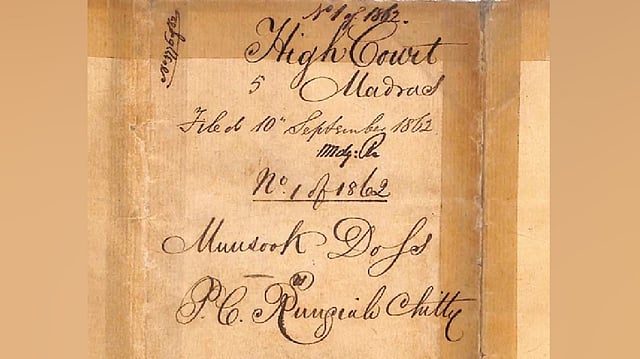 No 1 of 1862.
High Court
5 Madras
Filed 10" September 1862.
No. 1 of 1862
Munsook Doss
vs
P. C. Rungiah Chitty